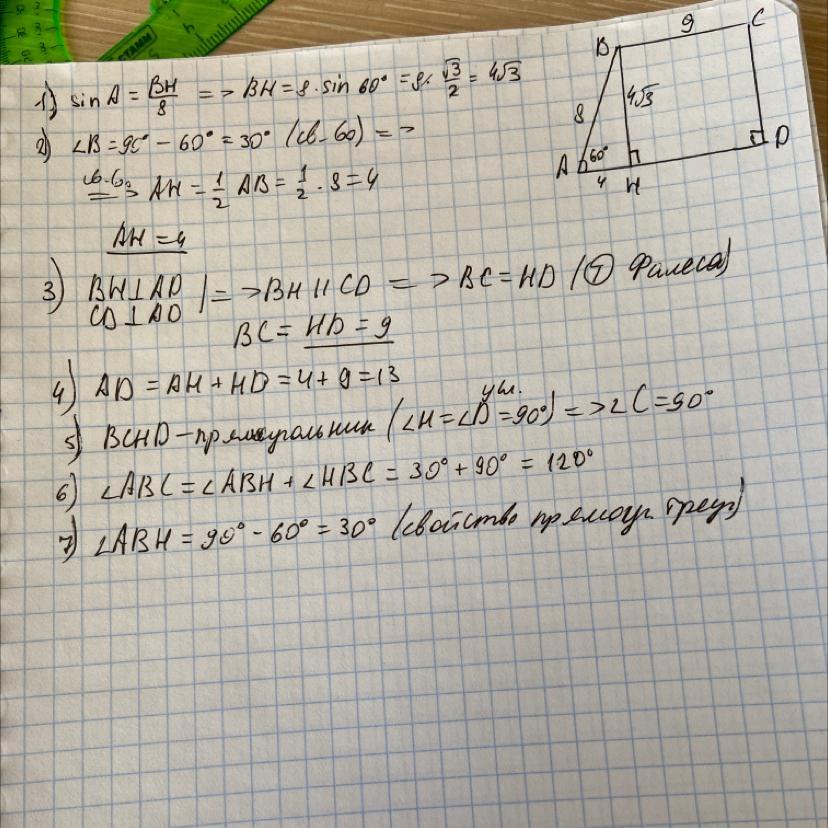 1) sin A = BH/8 => BH = 8 · sin 60° = 8 · √3/2 = 4√3
2) ∠B = 90° − 60° = 30° (св-во) =>
св-во => AH = 1/2 AB = 1/2 · 8 = 4
AH = 4
3) BH ⊥ AD
CD ⊥ AD | => BH || CD => BC = HD (Т Фалеса)
BC = HD = 9
4) AD = AH + HD = 4 + 9 = 13
5) BCHD – прямоугольник (∠H = ∠D = 90°) => ∠C = 90°
6) ∠ABC = ∠ABH + ∠HBC = 30° + 90° = 120°
7) ∠ABH = 90° − 60° = 30° (свойство прямоуг. треуг)
B
9
C
8
4√3
A
60°
4
H
D